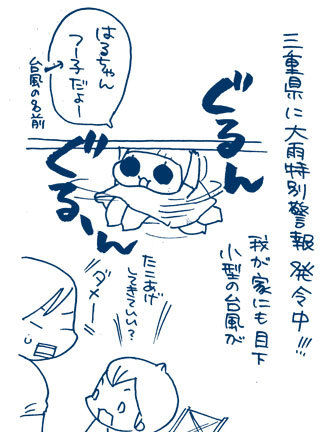 三重県に大雨特別警報発令中!!!
我が家にも目下
小型の台風が
ぐるん
ぐるん
はるちゃん
フー子だよー
台風の名前
たこあげ
してきていい?
ダメー